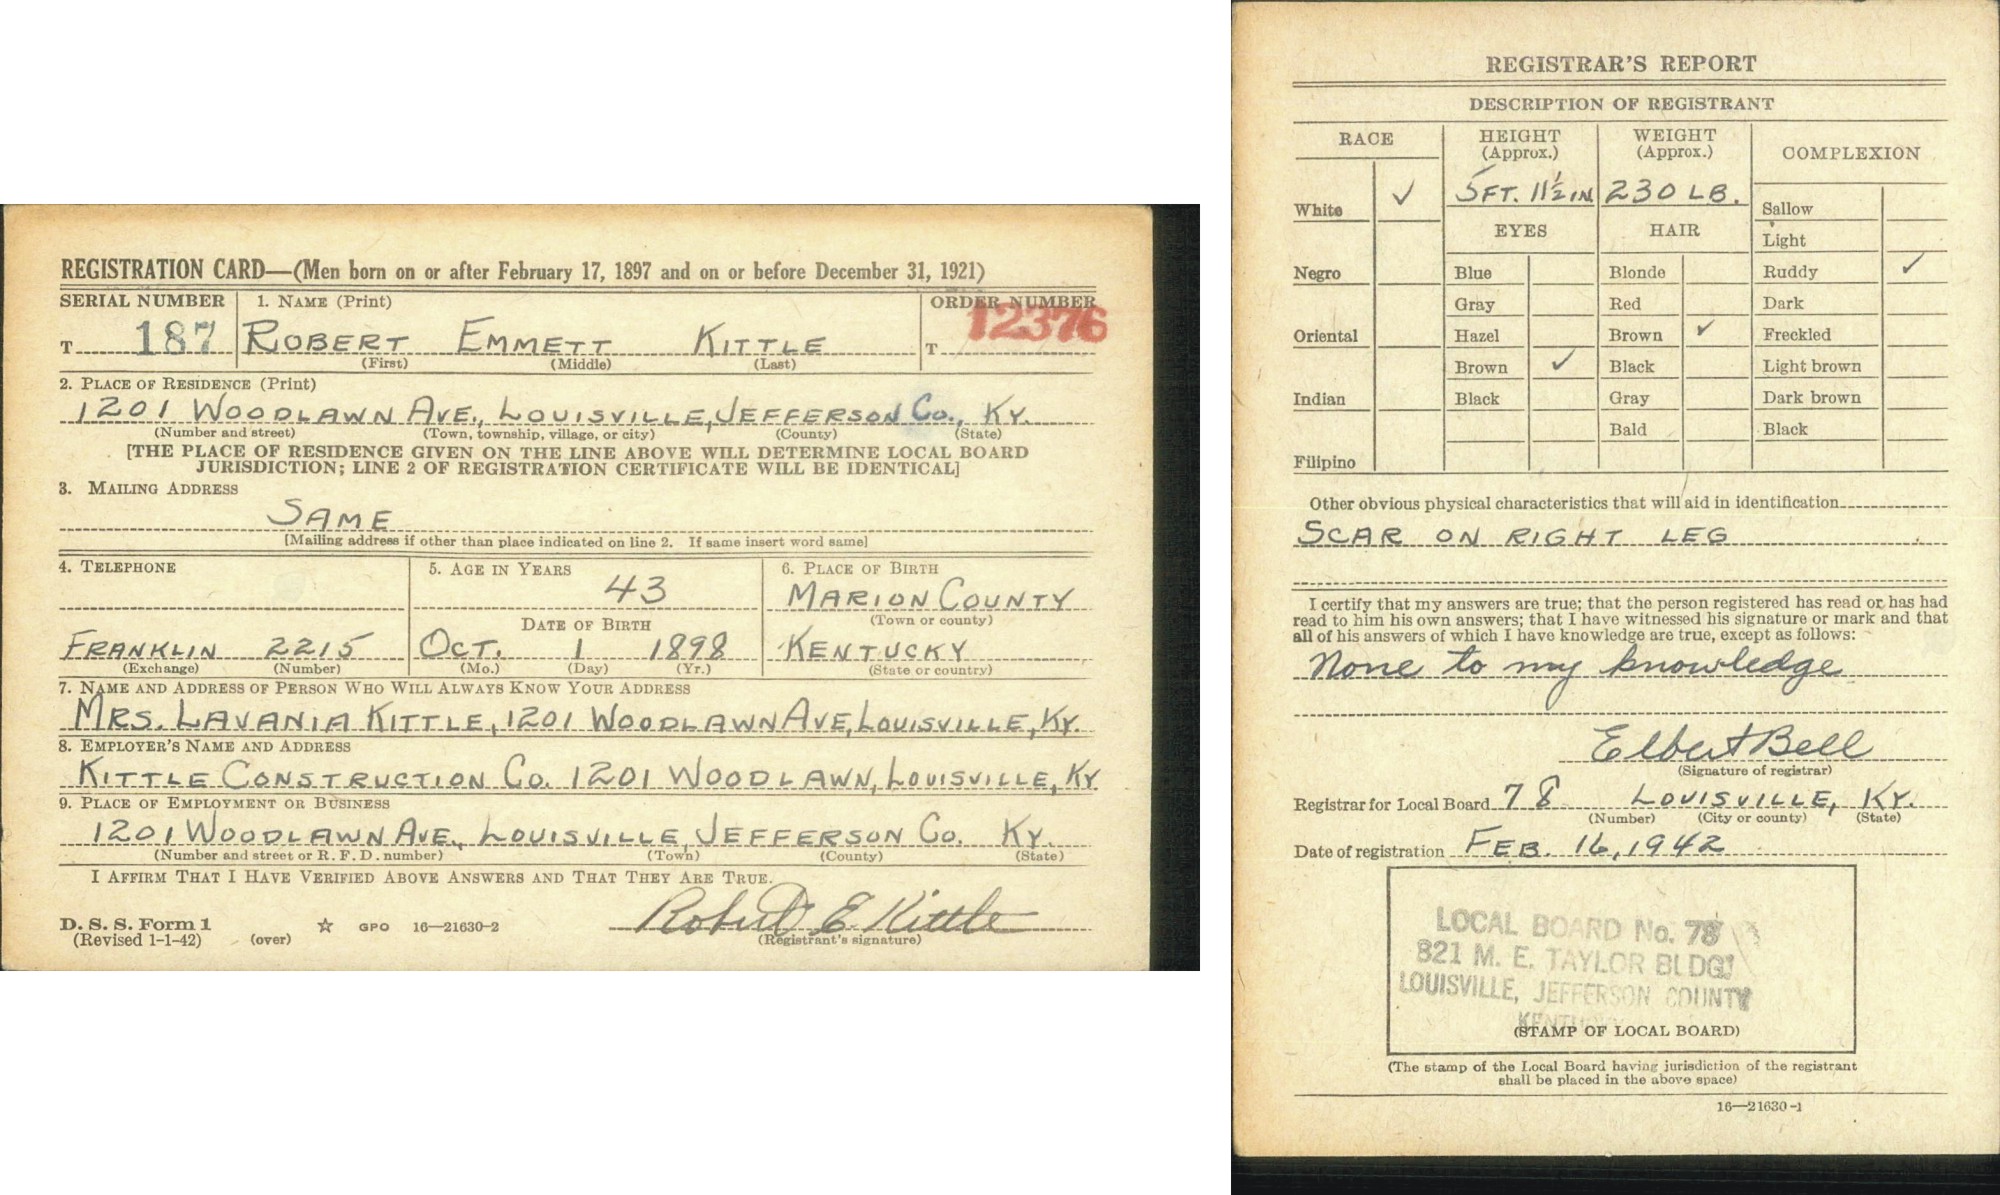 REGISTRATION CARD—(Men born on or after February 17, 1897 and on or before December 31, 1921)
SERIAL NUMBER 1. NAME (Print) ORDER NUMBER
T 187 ROBERT EMMETT KITTLE T 12376
(First) (Middle) (Last)
2. PLACE OF RESIDENCE (Print)
1201 WOODLAWN AVE., LOUISVILLE, JEFFERSON CO., KY.
(Number and street) (Town, township, village, or city) (County) (State)
[THE PLACE OF RESIDENCE GIVEN ON THE LINE ABOVE WILL DETERMINE LOCAL BOARD
JURISDICTION; LINE 2 OF REGISTRATION CERTIFICATE WILL BE IDENTICAL]
3. MAILING ADDRESS
SAME
[Mailing address if other than place indicated on line 2. If same insert word same]
4. TELEPHONE 5. AGE IN YEARS 6. PLACE OF BIRTH
43 MARION COUNTY
DATE OF BIRTH (Town or county)
FRANKLIN 2215 OCT. 1 1898 KENTUCKY
(Exchange) (Number) (Mo.) (Day) (Yr.) (State or country)
7. NAME AND ADDRESS OF PERSON WHO WILL ALWAYS KNOW YOUR ADDRESS
MRS. LAVANIA KITTLE, 1201 WOODLAWN AVE, LOUISVILLE, KY.
8. EMPLOYER'S NAME AND ADDRESS
KITTLE CONSTRUCTION CO. 1201 WOODLAWN, LOUISVILLE, KY
9. PLACE OF EMPLOYMENT OR BUSINESS
1201 WOODLAWN AVE., LOUISVILLE, JEFFERSON CO. KY.
(Number and street or R. F. D. number) (Town) (County) (State)
I AFFIRM THAT I HAVE VERIFIED ABOVE ANSWERS AND THAT THEY ARE TRUE.
Robert E. Kittle
D. S. S. Form 1
(Revised 1-1-42) (over) ☆ GPO 16—21630-2 (Registrant's signature)
REGISTRAR'S REPORT
DESCRIPTION OF REGISTRANT
RACE HEIGHT (Approx.) WEIGHT (Approx.) COMPLEXION
White ✓ 5 FT. 11½ IN 230 LB. Sallow
EYES HAIR Light
Negro Blue Blonde Ruddy ✓
Gray Red Dark
Oriental Hazel Brown ✓ Freckled
Brown ✓ Black Light brown
Indian Black Gray Dark brown
Bald Black
Filipino
Other obvious physical characteristics that will aid in identification
SCAR ON RIGHT LEG
I certify that my answers are true; that the person registered has read or has had
read to him his own answers; that I have witnessed his signature or mark and that
all of his answers of which I have knowledge are true, except as follows:
None to my knowledge
Elbert Bell
(Signature of registrar)
Registrar for Local Board 78 LOUISVILLE, KY.
(Number) (City or county) (State)
Date of registration FEB. 16, 1942
LOCAL BOARD No. 78
821 M. E. TAYLOR BLDG.
LOUISVILLE, JEFFERSON COUNTY
KENTUCKY
(STAMP OF LOCAL BOARD)
(The stamp of the Local Board having jurisdiction of the registrant
shall be placed in the above space)
16—21630-1